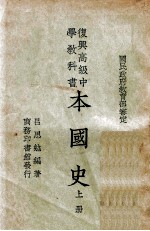 國民政府教育部審定
復興高級中
學教科書
本國史
上册
呂思勉編著
商務印書館發行